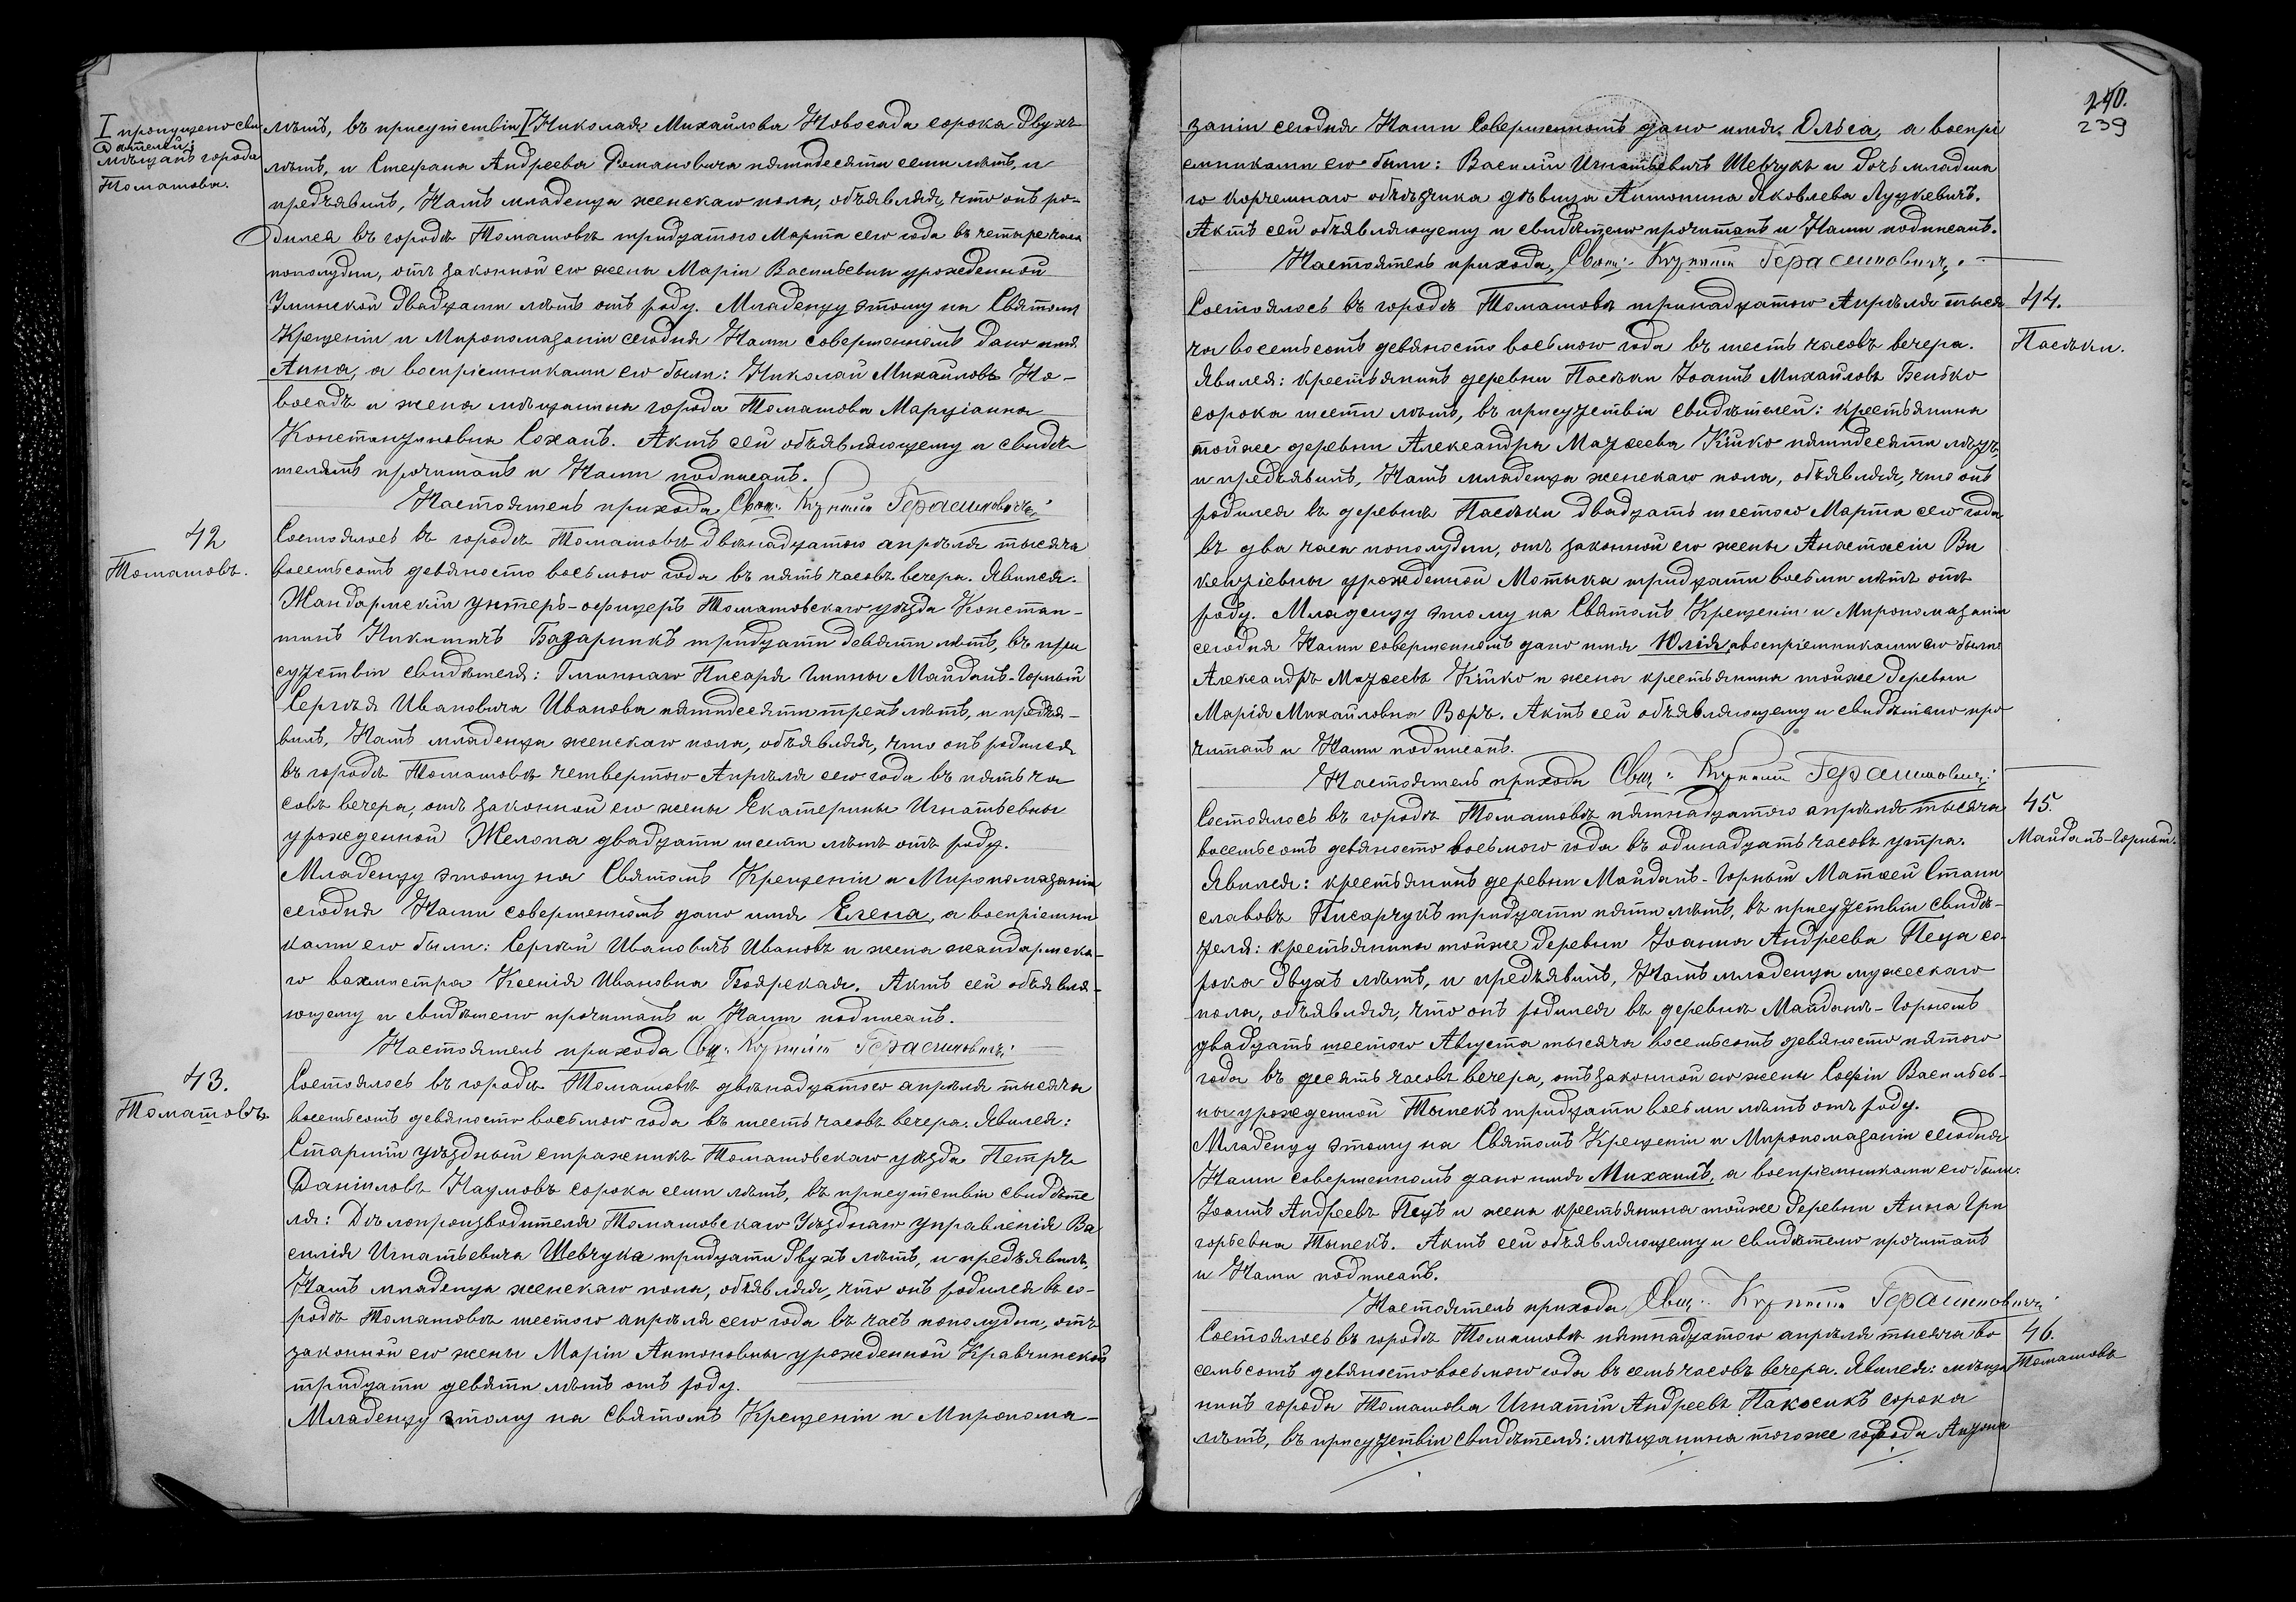 I пропущено сви
дѣтелей:
мѣщанъ города
Томашова.
лѣтъ, въ присутствіи I Николая Михайлова Новосада сорока двухъ
лѣтъ, и Стефана Андреева Романовича пятидесяти семи лѣтъ, и
предъявилъ, Намъ младенца женскаго пола, объявляя, что онъ ро-
дился въ городѣ Томашовѣ тридцатого Марта сего года въ четыре часа
пополудни, отъ законной его жены Маріи Васильевны урожденной
двадцати лѣтъ отъ роду. Младенцу этому на Святомъ
Крещеніи и Миропомазаніи сегодня Нами совершенномъ дано имя
Анна, а воспріемниками его были: Николай Михайловъ Но-
восадъ и жена мѣщанина города Томашова Маруіанна
Константиновна Соханъ. Актъ сей объявляющему и свидѣ-
телямъ прочитанъ и Нами подписанъ.
Настоятель прихода Свящ. Герасимовичъ
42
Томашовъ.
Состоялось въ городѣ Томашовѣ двѣнадцатого апрѣля тысяча
восемьсотъ девяносто восьмого года въ пять часовъ вечера. Явился:
Жандармскій унтеръ-офицеръ Томашовскаго уѣзда Констан-
тинъ Никитичъ Базарникъ тридцати девяти лѣтъ, въ при
сутствіи свидѣтеля: Гминнаго Писаря гмины Майданъ-Горный
Сергѣя Ивановича Иванова пятидесяти трехъ лѣтъ, и предъя-
вилъ, Намъ младенца женскаго пола, объявляя, что онъ родился
въ городѣ Томашовѣ четвертого Апрѣля сего года въ пять ча
совъ вечера, отъ законной его жены Екатерины Игнатьевны
урожденной Желопа двадцати шести лѣтъ отъ роду.
Младенцу этому на Святомъ Крещеніи и Миропомазаніи
сегодня Нами совершенномъ дано имя Елена, а воспріемни
ками его были: Сергѣй Ивановичъ Ивановъ и жена жандармска-
го вахмистра Ксенія Ивановна Боярская. Актъ сей объявля-
ющему и свидѣтелю прочитанъ и Нами подписанъ.
Настоятель прихода Свящ. Герасимовичъ
43.
Томашовъ.
Состоялось въ городѣ Томашовѣ двѣнадцатого апрѣля тысяча
восемьсотъ девяносто восьмого года въ шесть часовъ вечера. Явился:
Старшій уѣздный стражникъ Томашовскаго уѣзда Петръ
Даніиловъ Наумовъ сорока семи лѣтъ, въ присутствіи свидѣте
ля: Дѣлопроизводителя Томашовскаго Уѣзднаго Управленія Ва
силія Игнатьевича Шевчука тридцати двухъ лѣтъ, и предъявилъ,
Намъ младенца женскаго пола, объявляя, что онъ родился въ го-
родѣ Томашовѣ шестого апрѣля сего года въ часъ пополудни, отъ
законной его жены Маріи Антоновны урожденной Кравчинской
тридцати девяти лѣтъ отъ роду.
Младенцу этому на Святомъ Крещеніи и Миропома-
240.
239
заніи сегодня Нами совершенномъ дано имя Ольга, а воспрі
емниками его были: Василій Игнатьевичъ Шевчукъ и дочь младша
го корчемнаго объѣзчика дѣвица Антонина Яковлева Луцкевичъ.
Актъ сей объявляющему и свидѣтелю прочитанъ и Нами подписанъ.
Настоятель прихода, Свящ. Герасимовичъ.
44.
Пасѣки.
Состоялось въ городѣ Томашовѣ тринадцатого Апрѣля тыся
ча восемьсотъ девяносто восьмого года въ шесть часовъ вечера.
Явился: крестьянинъ деревни Пасѣки Іоаннъ Михайловъ Бенько
сорока шести лѣтъ, въ присутствіи свидѣтелей: крестьянина
тойже деревни Александра Матѳеева Кійко пятидесяти лѣтъ,
и предъявилъ, Намъ младенца женскаго пола, объявляя, что онъ
родился въ деревнѣ Пасѣки двадцать шестого Марта сего года
въ два часа пополудни, отъ законной его жены Анастасіи Ви
кентіевны урожденной Мотыка тридцати восьми лѣтъ отъ
роду. Младенцу этому на Святомъ Крещеніи и Миропомазаніи
сегодня Нами совершенномъ дано имя Юлія, а воспріемниками его были:
Александръ Матѳеевъ Кійко и жена крестьянина тойже деревни
Марія Михайловна Воръ. Актъ сей объявляющему и свидѣтелю про
читанъ и Нами подписанъ.
Настоятель прихода Свящ. Герасимовичъ
45.
Майданъ-Горный.
Состоялось въ городѣ Томашовѣ пятнадцатого апрѣля тысяча
восемьсотъ девяносто восьмого года въ одинадцать часовъ утра.
Явился: крестьянинъ деревни Майданъ-Горный Матѳей Стани
славовъ Писарчукъ тридцати пяти лѣтъ, въ присутствіи свидѣ-
теля: крестьянина тойже деревни Іоанна Андреева Пеца со-
рока двухъ лѣтъ, и предъявилъ, Намъ младенца мужескаго
пола, объявляя, что онъ родился въ деревнѣ Майданъ-Горномъ
двадцать шестого Августа тысяча восемьсотъ девяносто пятого
года въ десять часовъ вечера, отъ законной его жены Софіи Васильев-
ны урожденной Тыпекъ тридцати восьми лѣтъ отъ роду.
Младенцу этому на Святомъ Крещеніи и Миропомазаніи сегодня
Нами совершенномъ дано имя Михаилъ, а воспріемниками его были:
Іоаннъ Андреевъ Пецъ и жена крестьянина тойже деревни Анна Гри
горьевна Тыпекъ. Актъ сей объявляющему и свидѣтелю прочитанъ
и Нами подписанъ.
Настоятель прихода, Свящ. Герасимовичъ
46.
Томашовъ
Состоялось въ городѣ Томашовѣ пятнадцатого апрѣля тысяча во
семьсотъ девяносто восьмого года въ семь часовъ вечера. Явился: мѣща
нинъ города Томашова Игнатій Андреевъ Пакосикъ сорока
лѣтъ, въ присутствіи свидѣтеля: мѣщанина тогоже города Антона